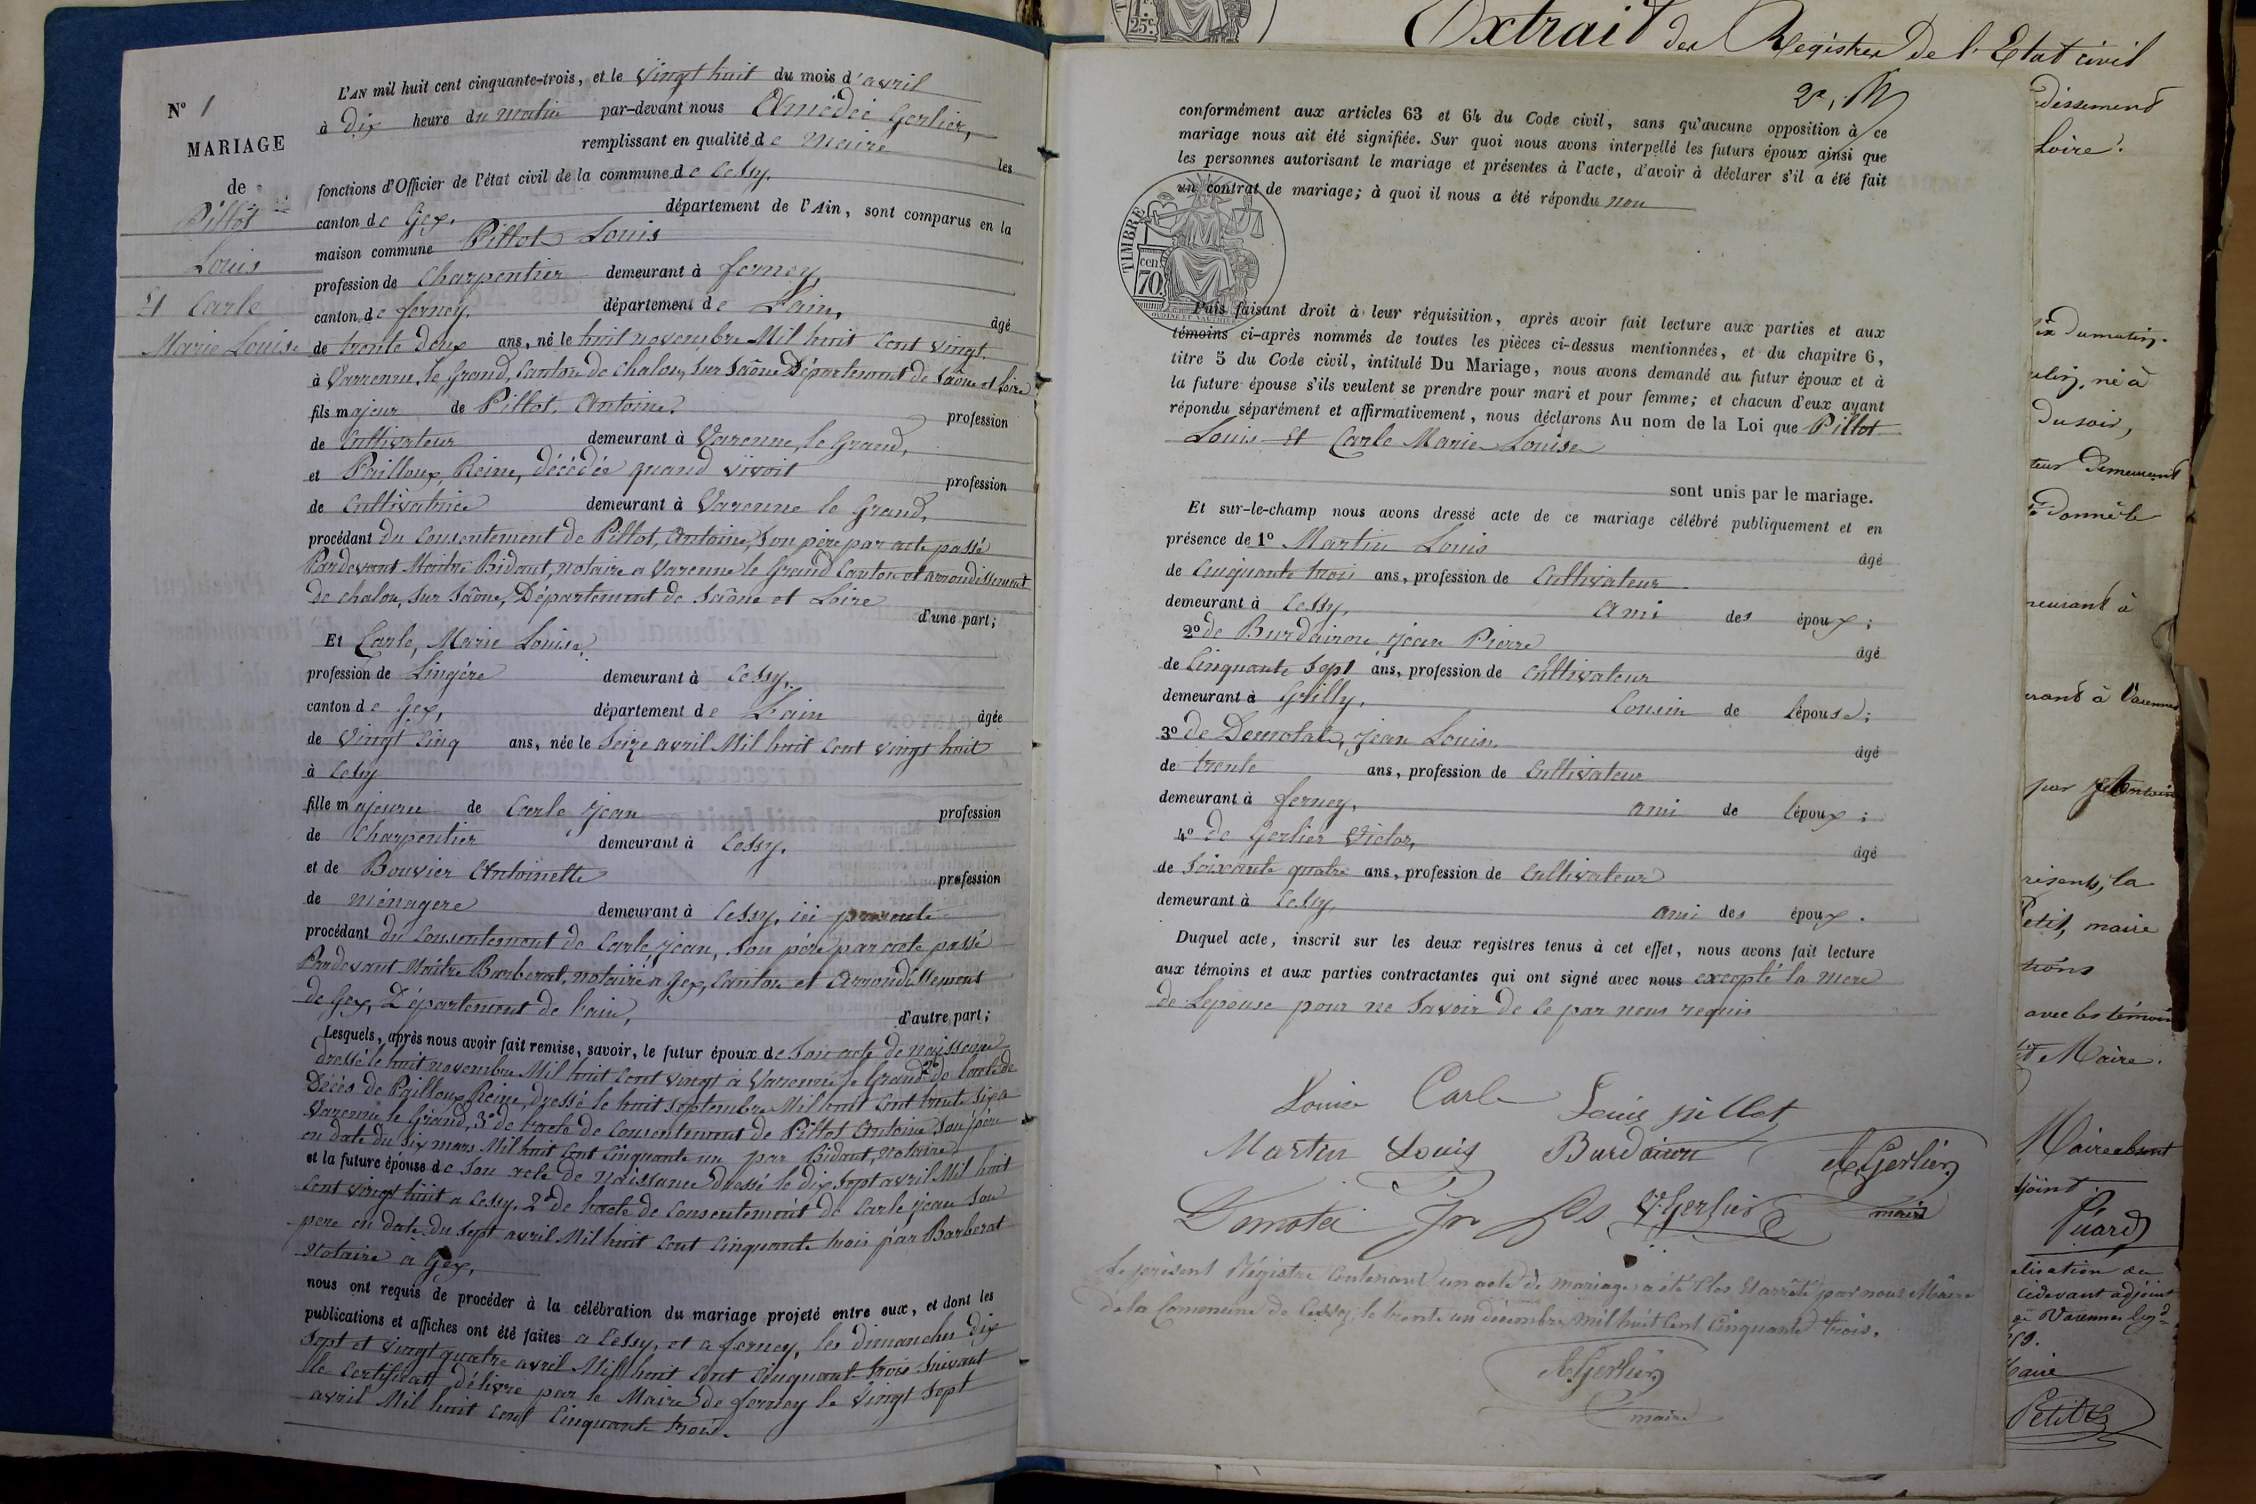 N° 1
MARIAGE
de
Pillot
Louis
Et Carle
Marie Louise
L'AN mil huit cent cinquante-trois, et le vingt huit du mois d'avril
à dix heure du matin par-devant nous Amédée Gerlier,
remplissant en qualité de Maire les
fonctions d'Officier de l'état civil de la commune de Cessy.
canton de Gex. département de l'Ain, sont comparus en la
maison commune Pillot Louis
profession de Charpentier demeurant à ferney,
canton de ferney. département de Lain, âgé
de trente deux ans, né le huit novembre Mil huit Cent vingt.
à Varrenne, le Grand, Canton de Chalon, sur Saône Département de Saône et Loire
fils majeur de Pillot, Antoine, profession
de Cultivateur demeurant à Varenne, le Grand,
et Pailloux, Reine, décédée quand vivoit profession
de Cultivatrice demeurant à Varenne le Grand,
procédant du Consentement de Pillot, Antoine, Son père par acte passé
Pardevant Maitre Bidaut, notaire a Varenne le Grand Canton et arrondissement
de chalon, Sur Saône, Département de Saône et Loire
d'une part;
Et Carle, Marie Louise,
profession de Lingère demeurant à Cessy,
canton de Gex, département de Lain âgée
de vingt Cinq ans, née le Seize avril Mil huit Cent vingt huit
à Cessy
fille majeure de Carle Jean profession
de Charpentier demeurant à Cessy.
et de Bouvier Antoinette profession
de ménagere demeurant à Cessy, ici presente
procédant du Consentement de Carle, Jean, Son père par acte passé
Pardevant Maître Barberat, notaire a Gex, Canton et Arrondissement
de Gex, Département de l'ain,
d'autre part;
Lesquels, après nous avoir fait remise, savoir, le futur époux de Son acte de naissance
dressé le huit novembre Mil huit Cent vingt a Varenne le Grand 2° de l'acte de
Décès de Pailloux Reine, dressé le huit Septembre Mil huit Cent trente Six a
Varenne le Grand, 3° de l'acte de Consentement de Pillot Antoine Son père
en date du Six mars Mil huit Cent Cinquante un par Bidaut, Notaire
et la future épouse de Son acte de Naissance dressé le dix Sept avril Mil huit
Cent vingt huit a Cessy. 2° de l'acte de Consentement de Carle Jean Son
pere en date du Sept avril Mil huit Cent Cinquante trois par Barberat
Notaire a Gex,
nous ont requis de procéder à la célébration du mariage projeté entre eux, et dont les
publications et affiches ont été faites a Cessy, et a ferney, les dimanches dix
Sept et vingt quatre avril Mil huit Cent Cinquante trois Suivant
le Certificat délivre par le Maire de ferney le vingt Sept
avril Mil huit Cent Cinquante trois.
conformément aux articles 63 et 64 du Code civil, sans qu'aucune opposition à ce
mariage nous ait été signifiée. Sur quoi nous avons interpellé les futurs époux ainsi que
les personnes autorisant le mariage et présentes à l'acte, d'avoir à déclarer s'il a été fait
un contrat de mariage; à quoi il nous a été répondu non
TIMBRE
cen.
70.
Puis faisant droit à leur réquisition, après avoir fait lecture aux parties et aux
témoins ci-après nommés de toutes les pièces ci-dessus mentionnées, et du chapitre 6,
titre 5 du Code civil, intitulé Du Mariage, nous avons demandé au futur époux et à
la future épouse s'ils veulent se prendre pour mari et pour femme; et chacun d'eux ayant
répondu séparément et affirmativement, nous déclarons Au nom de la Loi que Pillot
Louis Et Carle Marie Louise
sont unis par le mariage.
Et sur-le-champ nous avons dressé acte de ce mariage célébré publiquement et en
présence de 1° Martin Louis âgé
de Cinquante trois ans, profession de Cultivateur
demeurant à Cessy, ami des époux;
2° de Burdairon Jean Pierre âgé
de Cinquante Sept ans, profession de Cultivateur
demeurant à Grilly, Cousin de lépouse;
3° de Demotat, Jean Louis âgé
de trente ans, profession de Cultivateur
demeurant à ferney, ami de lépoux;
4° de Gerlier Victor, âgé
de Soixante quatre ans, profession de Cultivateur
demeurant à Cessy ami des époux.
Duquel acte, inscrit sur les deux registres tenus à cet effet, nous avons fait lecture
aux témoins et aux parties contractantes qui ont signé avec nous excepté la mere
de Lepouse pour ne Savoir de ce par nous requis
Louise Carle Louis pillot
Martin Louis Burdairon A. Gerlier
maire
V. Gerlier
Le présent Régistre Contenant un acte de mariage a été Clos Et arrêté par nous Maire
de la Commune de Cessy le trente un décembre mil huit Cent Cinquante trois.
A. Gerlier
maire
25c.
Extrait des Registres de l'Etat civil
Loire.
du soir,
demeurant
à Varennes
maire
avec les témoins
Maire.
Maire absent
Puard
cidevant adjoint
Petit